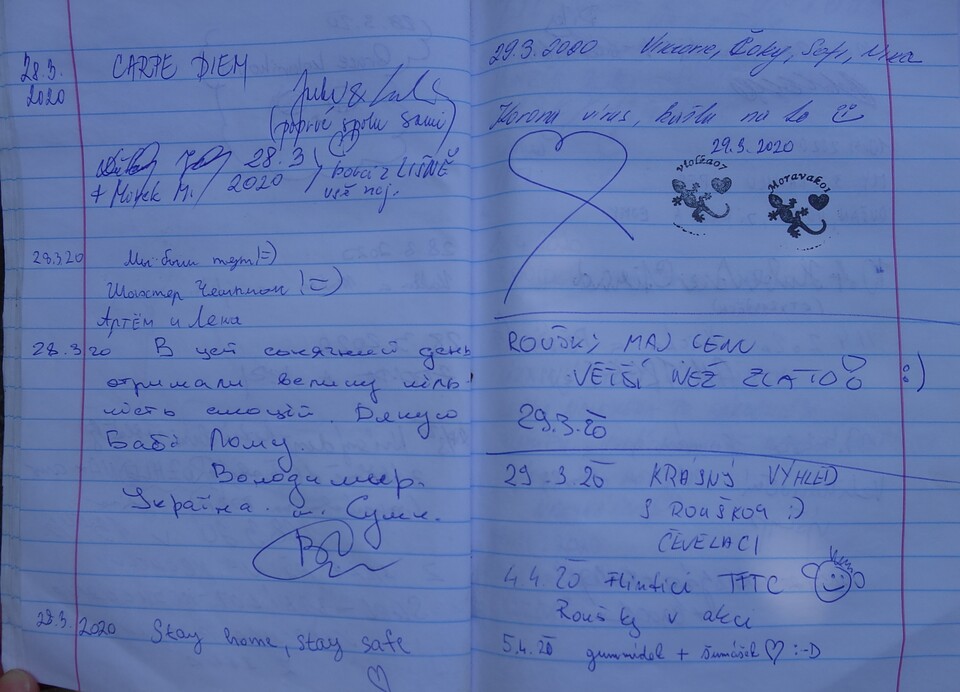 28.3. 2020 CARPE DIEM
(poprvé spolu sami)
28.3 2020
+ Marek M.
z LÍŠNĚ
28.3.20 Мы были тут! =)
Шахтер Чемпион! =)
Артём и Лена
28.3 20 В цей сонячний день
отримали велику кіль-
кість емоцій. Дякую
Бабі Лому.
Володимир.
Україна. м. Суми.
28.3. 2020 Stay home, stay safe
29.3.2020 Viktorie, Čoky, Sofi,
Korona virus, kašlu na to
29.3.2020
vločka07
Moravak01
ROUŠKY MAJ CENU
VĚTŠÍ NEŽ ZLATO :)
29.3.20
29.3.20 KRÁSNÝ VÝHLED
S ROUŠKOU :)
ČEVELACI
4.4.20 Flintici TFTC
Roušky v akci
5.4.20 gummídek + šumášek :-D